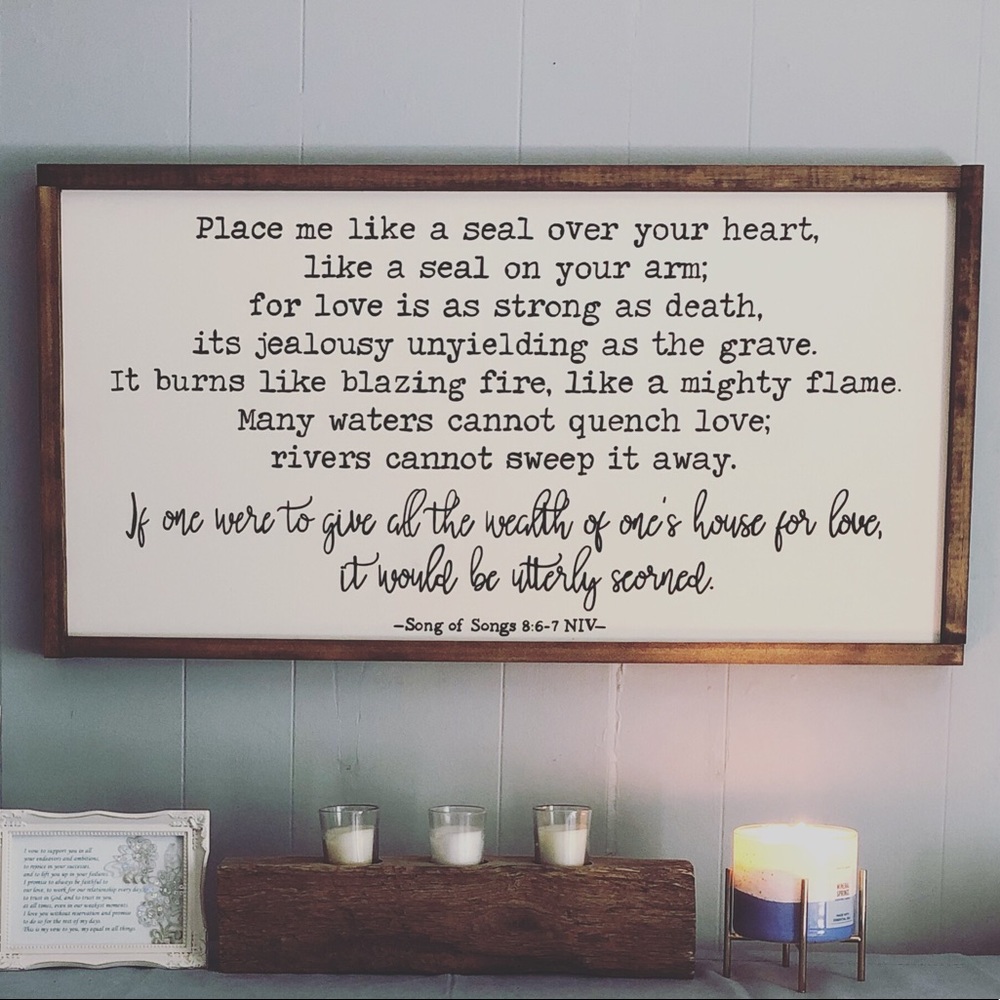 Place me like a seal over your heart,
like a seal on your arm;
for love is as strong as death,
its jealousy unyielding as the grave.
It burns like blazing fire, like a mighty flame.
Many waters cannot quench love;
rivers cannot sweep it away.
If one were to give all the wealth of one's house for love,
it would be utterly scorned.
–Song of Songs 8:6-7 NIV–
I vow to support you in all
your endeavors and ambitions,
to rejoice in your successes,
and to lift you up in your failures.
I promise to always be faithful to
our love, to work for our relationship every day,
to trust in God, and to trust in you,
at all times, even in our weakest moments.
I love you without reservation and promise
to do so for the rest of my days.
This is my vow to you, my equal in all things.
SPRING